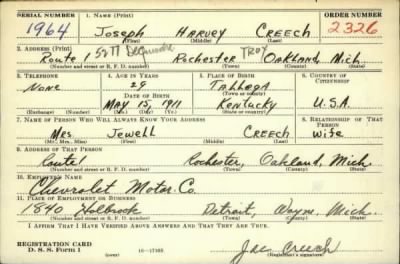 SERIAL NUMBER 1. NAME (Print) ORDER NUMBER
1964 JOSEPH HARVEY CREECH 2326
(First) (Middle) (Last)
2. ADDRESS (Print) 5977 DeQuindre TROY
ROUTE 1 ROCHESTER OAKLAND, MICH.
(Number and street or R. F. D. number) (Town) (County) (State)
3. TELEPHONE 4. AGE IN YEARS 5. PLACE OF BIRTH 6. COUNTRY OF CITIZENSHIP
NONE 29 TALLEGA
DATE OF BIRTH (Town or county)
MAY 15, 1911 KENTUCKY U.S.A.
(Exchange) (Number) (Mo.) (Day) (Yr.) (State or country)
7. NAME OF PERSON WHO WILL ALWAYS KNOW YOUR ADDRESS 8. RELATIONSHIP OF THAT PERSON
Mrs. JEWELL CREECH Wife
(Mr., Mrs., Miss) (First) (Middle) (Last)
9. ADDRESS OF THAT PERSON
Route 1 Rochester, Oakland, Mich.
(Number and street or R. F. D. number) (Town) (County) (State)
10. EMPLOYER'S NAME
Chevrolet Motor. Co.
11. PLACE OF EMPLOYMENT OR BUSINESS
1840 Holbrook Detroit, Wayne, Mich.
(Number and street or R. F. D. number) (Town) (County) (State)
I AFFIRM THAT I HAVE VERIFIED ABOVE ANSWERS AND THAT THEY ARE TRUE.
REGISTRATION CARD
D. S. S. Form 1 16—17105 Joe Creech
(over) (Registrant's signature)